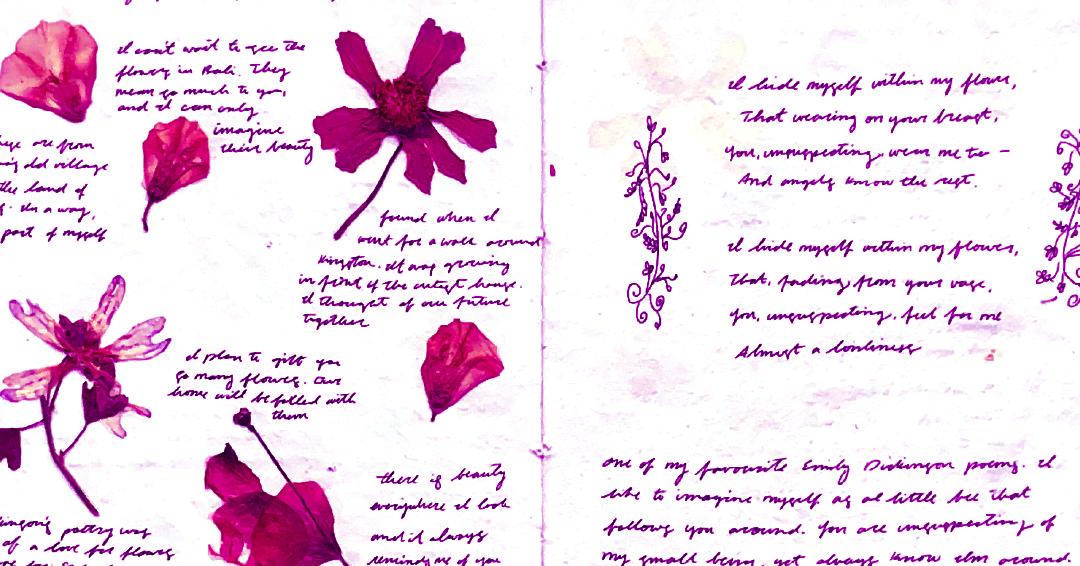 I can't wait to see the
flowers in Bali. They
mean so much to you,
and I can only
imagine
their beauty
are from
old village
the land of
In a way,
part of myself
found when I
went for a walk around
Kingston. It was growing
in front of the cutest house.
I thought of our future
together
I plan to gift you
so many flowers. Our
home will be filled with
them
there is beauty
everywhere I look
and it always
reminds me of you
poetry was
of a love for flowers
I hide myself within my flower,
That wearing on your breast,
You, unsuspecting, wear me too —
And angels know the rest.
I hide myself within my flower,
That, fading from your vase,
You, unsuspecting, feel for me
Almost a loneliness
one of my favourite Emily Dickinson poems. I
like to imagine myself as a little bee that
follows you around. You are unsuspecting of
my small being, yet always know I'm around.